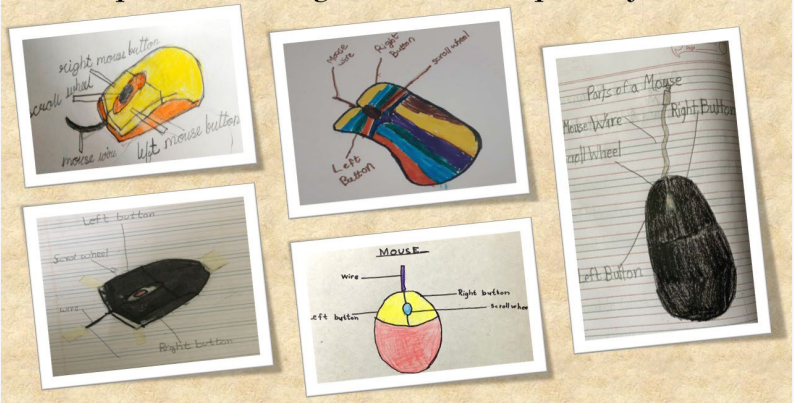 right mouse button
scroll wheel
mouse wire
left mouse button
Mouse
wire
Right
Button
scroll wheel
Left
Button
Parts of a Mouse
Mouse Wire
Right Button
croll Wheel
Left Button
Left button
Scrol wheel
wire
Right button
MOUSE
wire
Right button
eft button
scroll whee